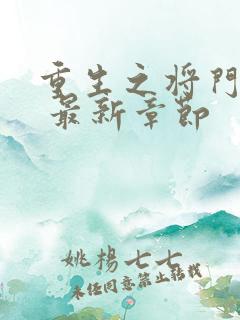 重生之将门
最新章节
姚杨七七
未经同意禁止转载